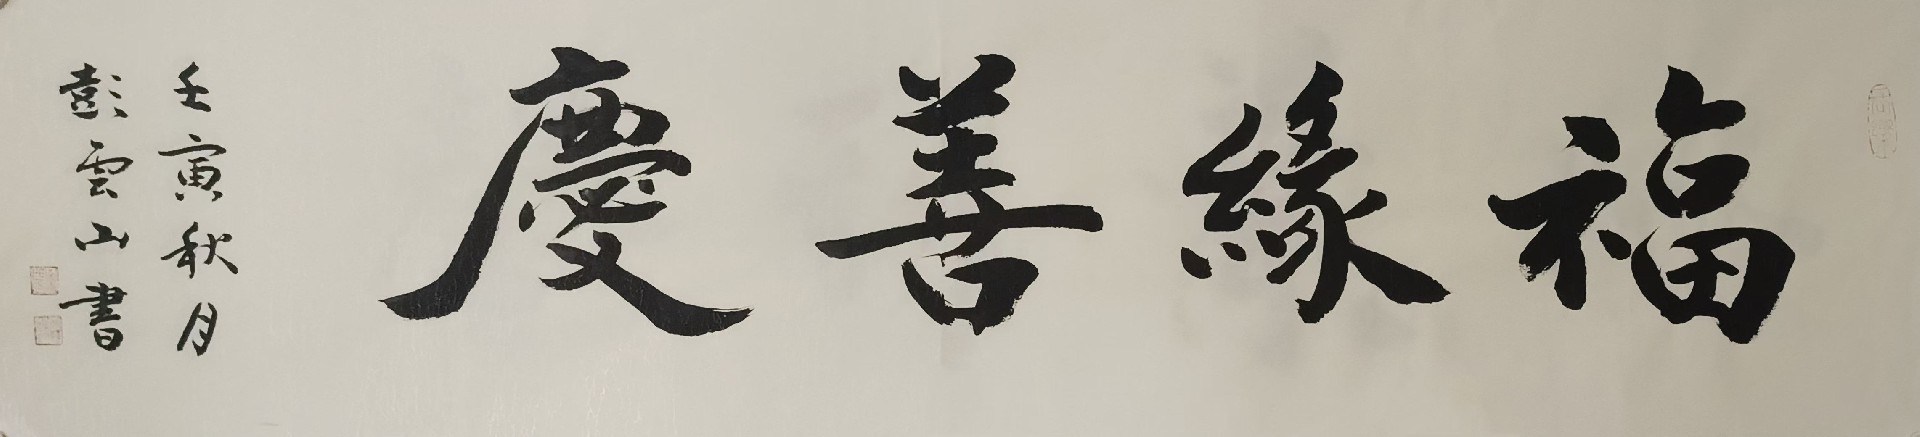 福緣善慶
壬寅秋月
彭雲山書